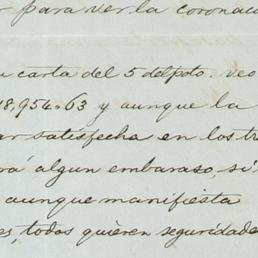 para ver la corona
carta del 5 del ppto. veo
18,954.63 y aunque la
satisfecha en los tr
rá algun embaraso, si
aunque manifiesta
es, todos quieren seguridade